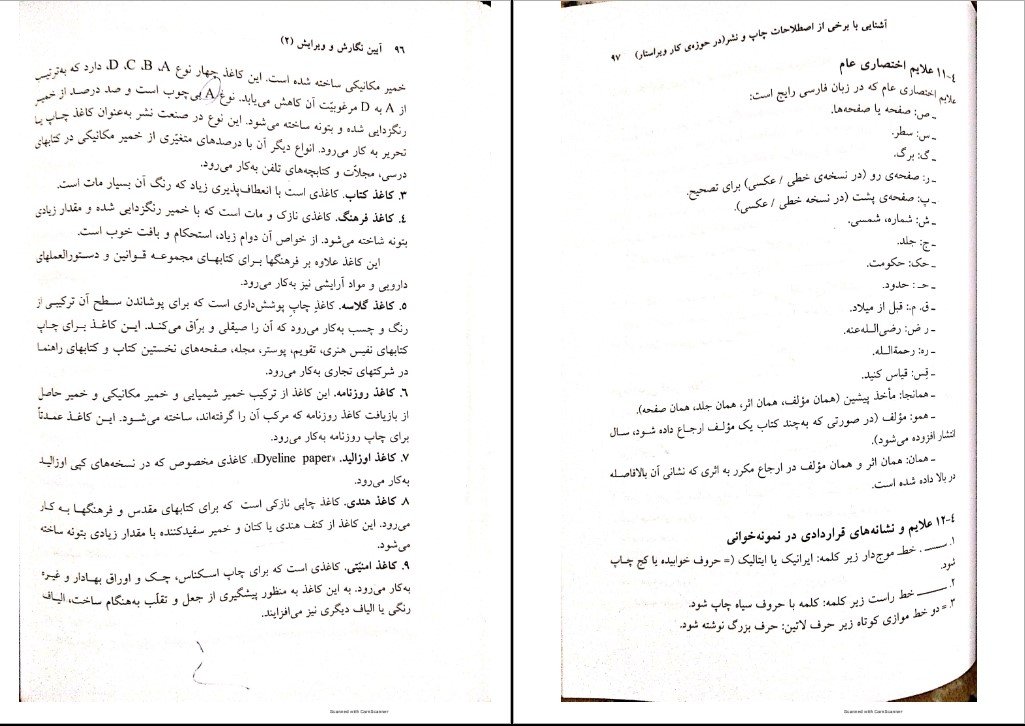 ۹۶ آیین نگارش و ویرایش (۲)
خمیر مکانیکی ساخته شده است. این کاغذ چهار نوع D ،C ،B ،A، دارد که به‌ترتیب
از A به D مرغوبیّت آن کاهش می‌یابد. نوع A بی‌چوب است و صد درصد از خمیر
رنگزدایی شده و بتونه ساخته می‌شود. این نوع در صنعت نشر به‌عنوان کاغذ چاپ یا
تحریر به کار می‌رود. انواع دیگر آن با درصدهای متغیّری از خمیر مکانیکی در کتابهای
درسی، مجلّات و کتابچه‌های تلفن به‌کار می‌رود.
۳. کاغذ کتاب. کاغذی است با انعطاف‌پذیری زیاد که رنگ آن بسیار مات است.
۴. کاغذ فرهنگ. کاغذی نازک و مات است که با خمیر رنگزدایی شده و مقدار زیادی
بتونه شاخته می‌شود. از خواص آن دوام زیاد، استحکام و بافت خوب است.
این کاغذ علاوه بر فرهنگها برای کتابهای مجموعه قوانین و دستورالعملهای
دارویی و مواد آرایشی نیز به‌کار می‌رود.
۵. کاغذ گلاسه. کاغذِ چاپِ پوشش‌داری است که برای پوشاندن سطح آن ترکیبی از
رنگ و چسب به‌کار می‌رود که آن را صیقلی و برّاق می‌کند. این کاغذ برای چاپ
کتابهای نفیس هنری، تقویم، پوستر، مجله، صفحه‌های نخستین کتاب و کتابهای راهنما
در شرکتهای تجاری به‌کار می‌رود.
۶. کاغذ روزنامه. این کاغذ از ترکیب خمیر شیمیایی و خمیر مکانیکی و خمیر حاصل
از بازیافت کاغذ روزنامه که مرکب آن را گرفته‌اند، ساخته می‌شود. این کاغذ عمدتاً
برای چاپ روزنامه به‌کار می‌رود.
۷. کاغذ اوزالید. «Dyeline paper». کاغذی مخصوص که در نسخه‌های کپی اوزالید
به‌کار می‌رود.
۸. کاغذ هندی. کاغذ چاپی نازکی است که برای کتابهای مقدس و فرهنگها به کار
می‌رود. این کاغذ از کنف هندی یا کتان و خمیر سفیدکننده با مقدار زیادی بتونه ساخته
می‌شود.
۹. کاغذ امنیّتی. کاغذی است که برای چاپ اسکناس، چک و اوراق بهادار و غیره
به‌کار می‌رود. به این کاغذ به منظور پیشگیری از جعل و تقلّب به‌هنگام ساخت، الیاف
رنگی یا الیاف دیگری نیز می‌افزایند.
Scanned with CamScanner
آشنایی با برخی از اصطلاحات چاپ و نشر(در حوزه‌ی کار ویراستار) ۹۷
۴-۱۱ علایم اختصاری عام
علایم اختصاری عام که در زبان فارسی رایج است:
ـ ص: صفحه یا صفحه‌ها.
ـ س: سطر.
ـ گ: برگ.
ـ ر: صفحه‌ی رو (در نسخه‌ی خطی / عکسی) برای تصحیح.
ـ پ: صفحه‌ی پشت (در نسخه خطی / عکسی).
ـ ش: شماره، شمسی.
ـ ج: جلد.
ـ حک: حکومت.
ـ حـ : حدود.
ـ ق. م.: قبل از میلاد.
ـ ر ض: رضی‌الـله‌عنه.
ـ ره: رحمة‌الـله.
ـ قِس: قیاس کنید.
ـ همانجا: مأخذ پیشین (همان مؤلف، همان اثر، همان جلد، همان صفحه).
ـ همو: مؤلف (در صورتی که به‌چند کتاب یک مؤلف ارجاع داده شود، سال
انتشار افزوده می‌شود).
ـ همان: همان اثر و همان مؤلف در ارجاع مکرر به اثری که نشانی آن بالافاصله
در بالا داده شده است.
۴-۱۲ علایم و نشانه‌های قراردادی در نمونه‌خوانی
۱. ــــــ . خط موج‌دار زیر کلمه: ایرانیک یا ایتالیک (= حروف خوابیده یا کج چاپ
شود.
۲. ــــــ خط راست زیر کلمه: کلمه با حروف سیاه چاپ شود.
۳. = دو خط موازی کوتاه زیر حرف لاتین: حرف بزرگ نوشته شود.
Scanned with CamScanner